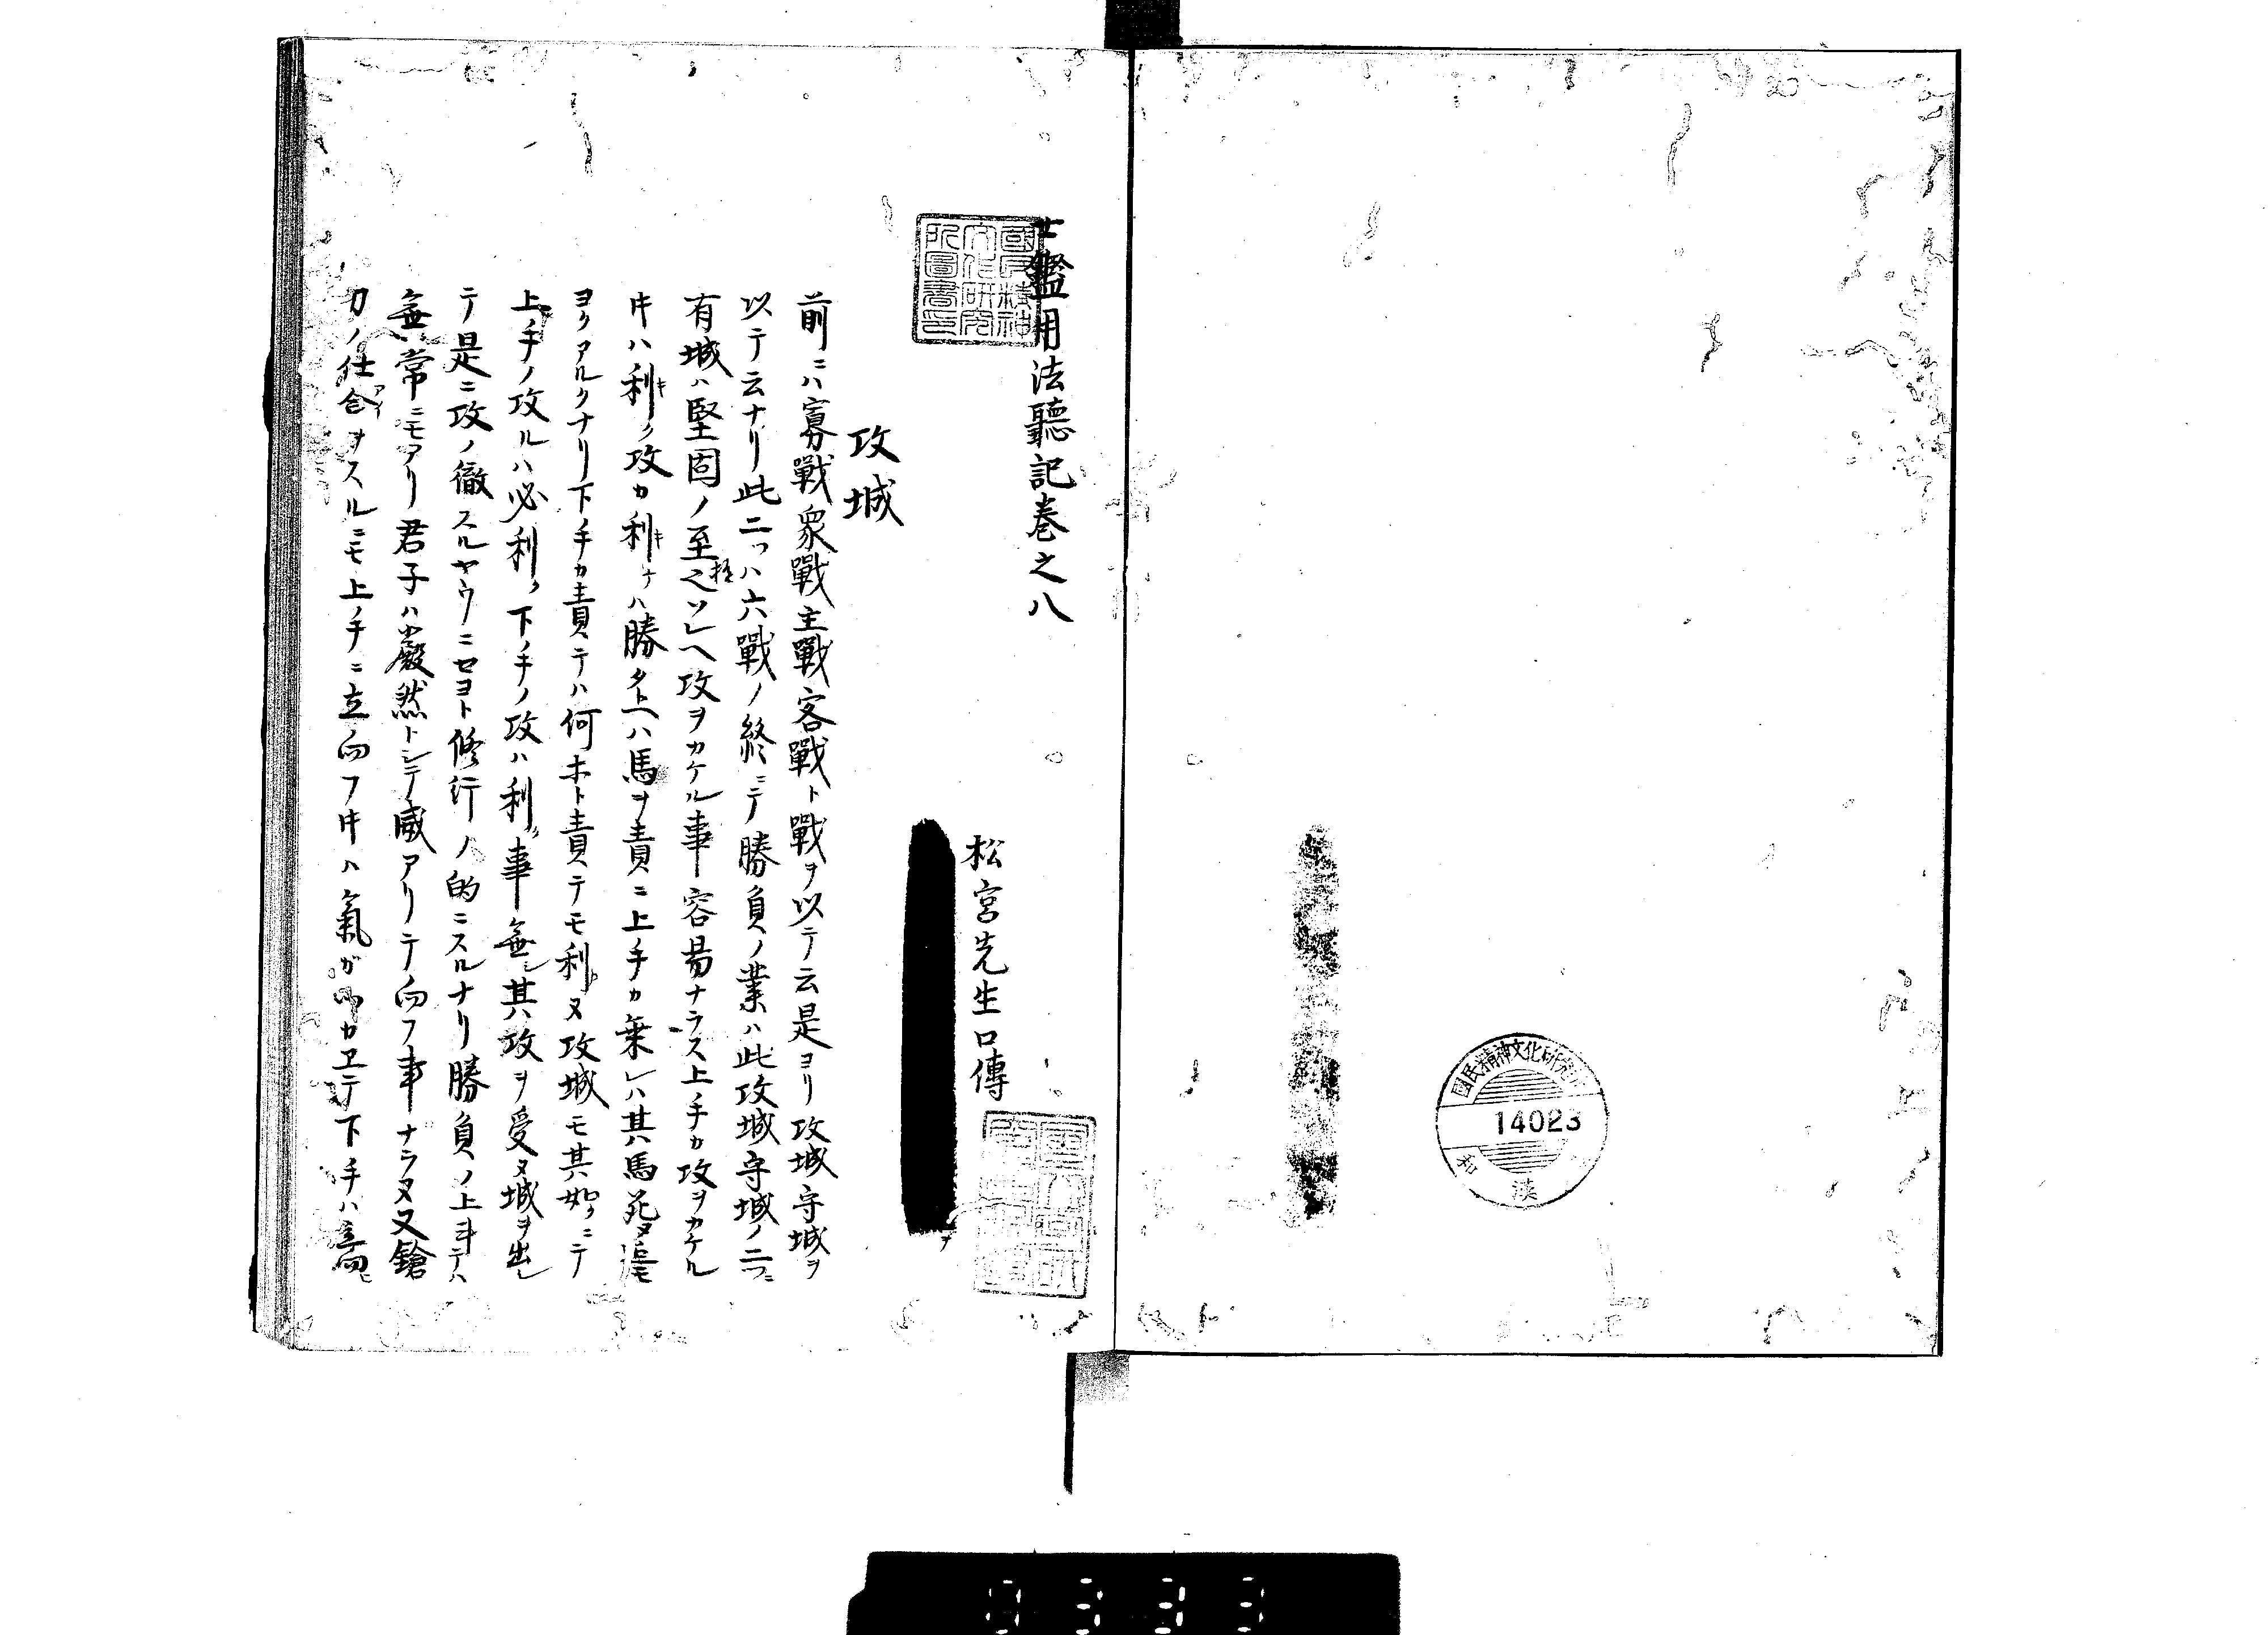 國民精神文化研究所
14023
和漢
士鑑用法聽記巻之八
國民精神文化研究所圖書之印
松宮先生口傳
攻城
前ニハ寡戰衆戰主戰客戰ト戰ヲ以テ云是ヨリ攻城守城ヲ
以テ云ナリ此二ツハ六戰ノ終ニテ勝負ノ業ハ此攻城守城ノ二ツニ
有城ハ堅固ノ至極之ソレヘ攻ヲカケル事容易ナラス上手カ攻ヲカケル
中ハ利キク攻カ利キナハ勝タトヘハ馬ヲ責ニ上手カ乗レハ其馬死ヌ迠モ
ヨクアルクナリ下手カ責テハ何ホト責テモ利カヌ攻城モ其如クニテ
上手ノ攻ルハ必利ク下手ノ攻ハ利事無シ其攻ヲ受ヌ城ヲ出シ
テ是ニ攻ノ徹スルヤウニセヨト修行ノ的ニスルナリ勝負ノ上ヨテハ
無常ニモアリ君子ハ嚴然トシテ威アリテ向フ事ナラヌ又鎗
刀ノ仕合アイヲスルニモ上手ニ立向フ中ハ氣ガカヱテ下手ハ立向ニ
0333